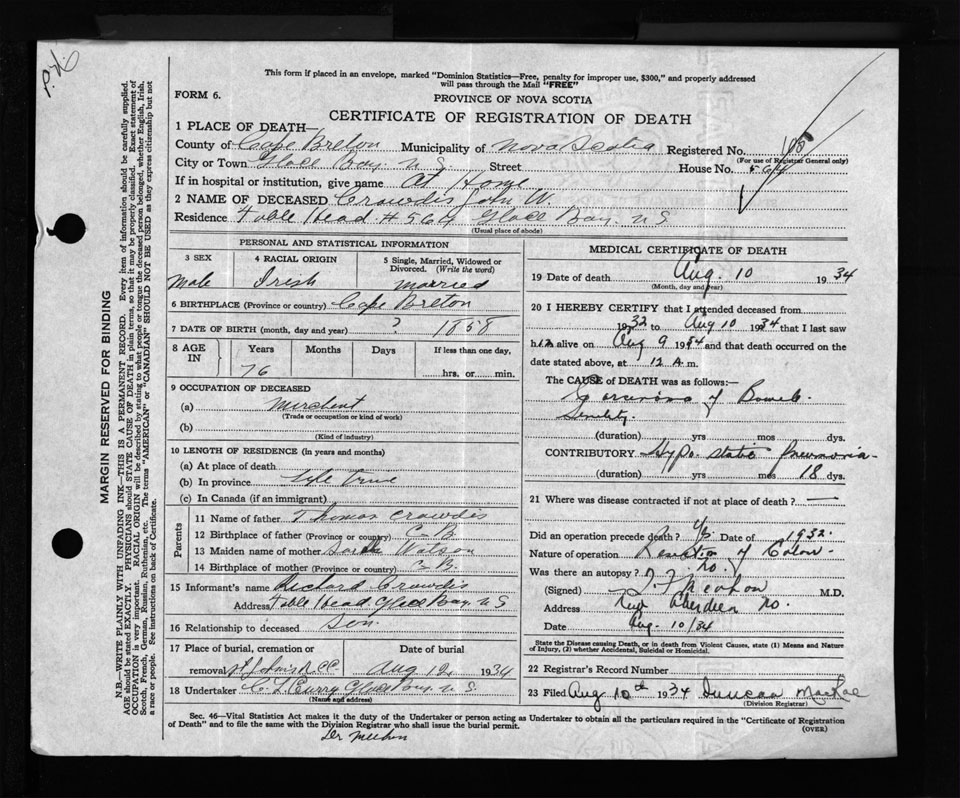 P.N.
This form if placed in an envelope, marked "Dominion Statistics—Free, penalty for improper use, $300," and properly addressed
will pass through the Mail "FREE"
FORM 6.
PROVINCE OF NOVA SCOTIA
CERTIFICATE OF REGISTRATION OF DEATH
1 PLACE OF DEATH—
County of Cape Breton Municipality of Nova Scotia Registered No.
(For use of Registrar General only)
City or Town Glace Bay. N.S. Street House No. 564
If in hospital or institution, give name At Home
2 NAME OF DECEASED Crowdis John W.
Residence Table Head # 564 Glace Bay. N S
(Usual place of abode)
PERSONAL AND STATISTICAL INFORMATION
3 SEX 4 RACIAL ORIGIN 5 Single, Married, Widowed or
Divorced. (Write the word)
Male Irish Married
6 BIRTHPLACE (Province or country) Cape Breton
7 DATE OF BIRTH (month, day and year) ? 1858
8 AGE IN Years Months Days If less than one day,
76 hrs. or min.
9 OCCUPATION OF DECEASED
(a) Merchant
(Trade or occupation or kind of work)
(b)
(Kind of industry)
10 LENGTH OF RESIDENCE (in years and months)
(a) At place of death
(b) In province Life time
(c) In Canada (if an immigrant)
Parents
11 Name of father Thomas Crowdis
12 Birthplace of father (Province or country) C-B
13 Maiden name of mother Watson
14 Birthplace of mother (Province or country) C-B.
15 Informant's name Richard Crowdis
Address Table Head Glace Bay. N S
16 Relationship to deceased Son
17 Place of burial, cremation or Date of burial
removal St Johns Aug 12 1934
18 Undertaker C L Curry Glace Bay. N. S.
(Name and address)
MEDICAL CERTIFICATE OF DEATH
19 Date of death Aug. 10 1934
(Month, day and year)
20 I HEREBY CERTIFY that I attended deceased from
1932 to Aug 10 1934 that I last saw
him alive on Aug 9 1934 and that death occurred on the
date stated above, at 12 A.m.
The CAUSE of DEATH was as follows:—
Carcinoma of Bowels
Senility
(duration) yrs mos dys.
CONTRIBUTORY Hypostatic Pneumonia
(duration) yrs mos 18 dys.
21 Where was disease contracted if not at place of death? —
Did an operation precede death? Yes Date of 1932
Nature of operation Resection of Colon
Was there an autopsy? No.
(Signed) M.D.
Address New Aberdeen
Date Aug. 10/34
State the Disease causing Death, or in death from Violent Causes, state (1) Means and Nature
of Injury, (2) whether Accidental, Suicidal or Homicidal.
22 Registrar's Record Number
23 Filed Aug 10th 1934 Duncan MacRae
(Division Registrar)
Sec. 46—Vital Statistics Act makes it the duty of the Undertaker or person acting as Undertaker to obtain all the particulars required in the "Certificate of Registration
of Death" and to file the same with the Division Registrar who shall issue the burial permit.
(OVER)
MARGIN RESERVED FOR BINDING
N.B.—WRITE PLAINLY WITH UNFADING INK—THIS IS A PERMANENT RECORD. Every item of information should be carefully supplied.
AGE should be stated EXACTLY. PHYSICIANS should STATE CAUSE OF DEATH in plain terms, so that it may be properly classified. Exact statement of
OCCUPATION is very important. RACIAL ORIGIN will be described by stating to what people or tongue the deceased person belonged, whether English, Irish,
Scotch, French, German, Russian, Ruthenian, etc. The terms "AMERICAN" or "CANADIAN" SHOULD NOT BE USED as they express citizenship but not
a race or people. See instructions on back of Certificate.